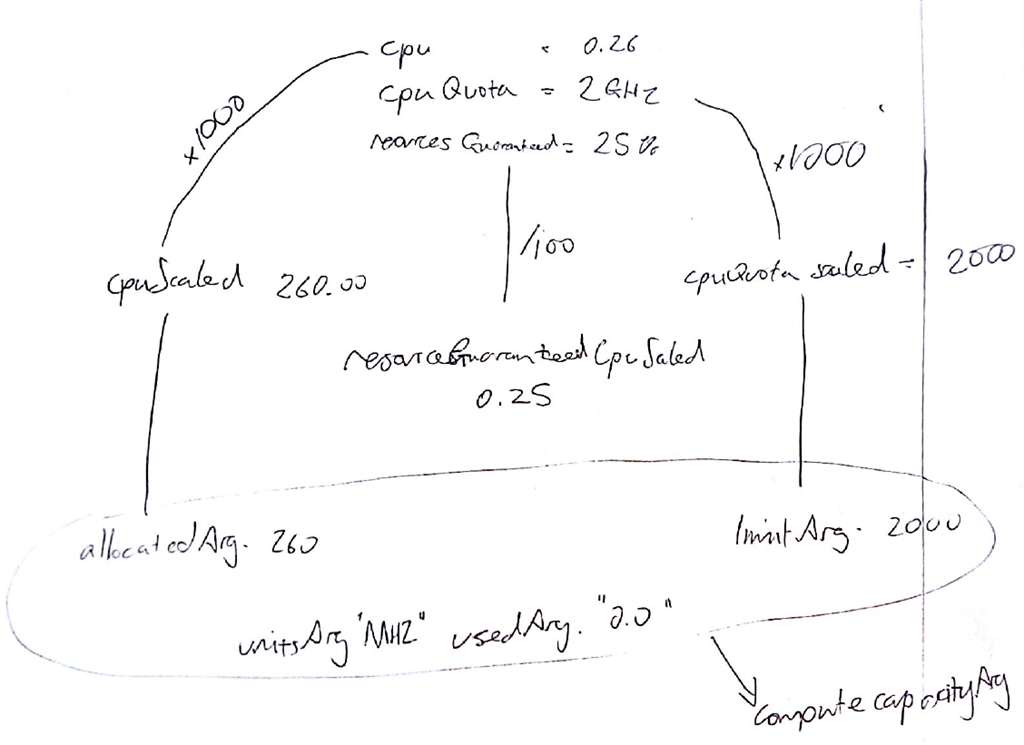 cpu = 0.26
cpuQuota = 2GHz
resorces Guaranteed = 25%
x1000
x1000
/100
cpuScaled 260.00
cpuQuota scaled = 2000
resorceGuaranteedCpuScaled
0.25
allocatedArg. 260
limitArg. 2000
unitsArg "MHZ" usedArg. "0.0"
Compute capacityArg